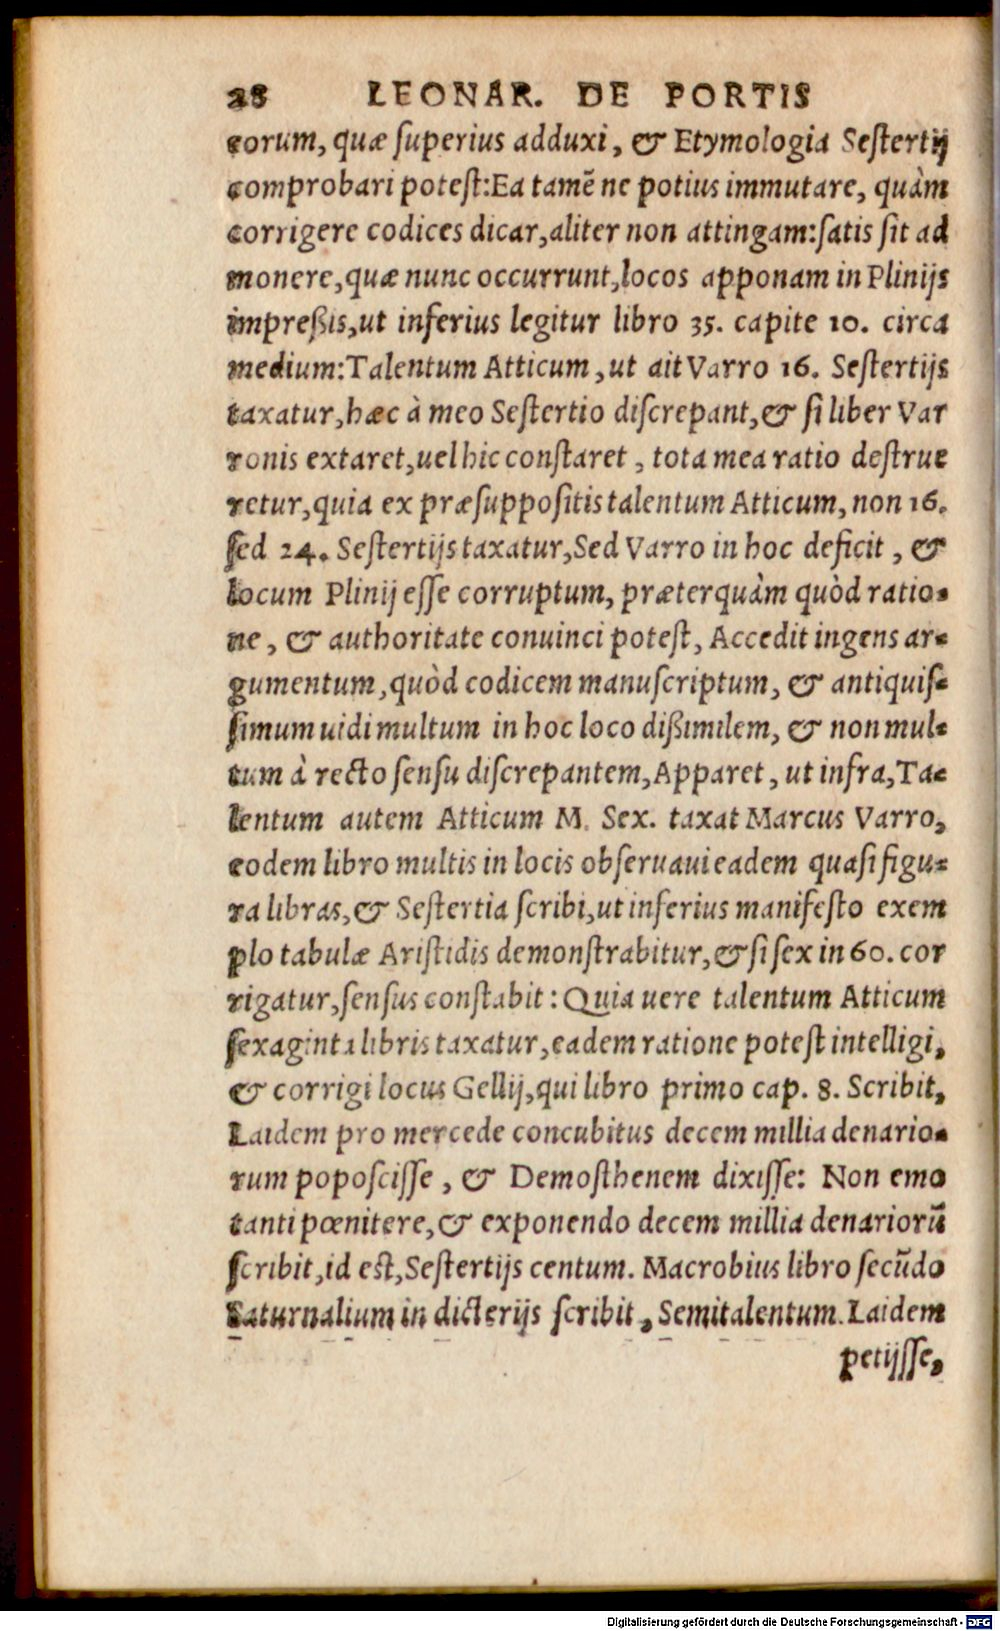 28 LEONAR. DE PORTIS
eorum, quæ ſuperius adduxi, & Etymologia Seſtertij
comprobari poteſt: Ea tamē ne potius immutare, quàm
corrigere codices dicar, aliter non attingam: ſatis ſit ad
monere, quæ nunc occurrunt, locos apponam in Plinijs
impreßis, ut inferius legitur libro 35. capite 10. circa
medium: Talentum Atticum, ut ait Varro 16. Seſtertijs
taxatur, hæc à meo Seſtertio diſcrepant, & ſi liber Var
ronis extaret, uel hic conſtaret, tota mea ratio deſtrue
retur, quia ex præſuppoſitis talentum Atticum, non 16.
ſed 24. Seſtertijs taxatur, Sed Varro in hoc deficit, &
locum Plinij eſſe corruptum, præterquàm quòd ratio-
ne, & authoritate conuinci poteſt, Accedit ingens ar-
gumentum, quòd codicem manuſcriptum, & antiquiſ-
ſimum uidi multum in hoc loco dißimilem, & non mul-
tum à recto ſenſu diſcrepantem, Apparet, ut infra, Ta-
lentum autem Atticum M. Sex. taxat Marcus Varro,
eodem libro multis in locis obſeruaui eadem quaſi figu-
ra libras, & Seſtertia ſcribi, ut inferius manifeſto exem
plo tabulæ Ariſtidis demonſtrabitur, & ſi ſex in 60. cor
rigatur, ſenſus conſtabit: Quia uere talentum Atticum
ſexaginta libris taxatur, eadem ratione poteſt intelligi,
& corrigi locus Gellij, qui libro primo cap. 8. Scribit,
Laidem pro mercede concubitus decem millia denario-
rum popoſciſſe, & Demoſthenem dixiſſe: Non emo
tanti pœnitere, & exponendo decem millia denariorū
ſcribit, id eſt, Seſtertijs centum. Macrobius libro ſecūdo
Saturnalium in dicterijs ſcribit, Semitalentum. Laidem
petijſſe,
Digitalisierung gefördert durch die Deutsche Forschungsgemeinschaft - DFG